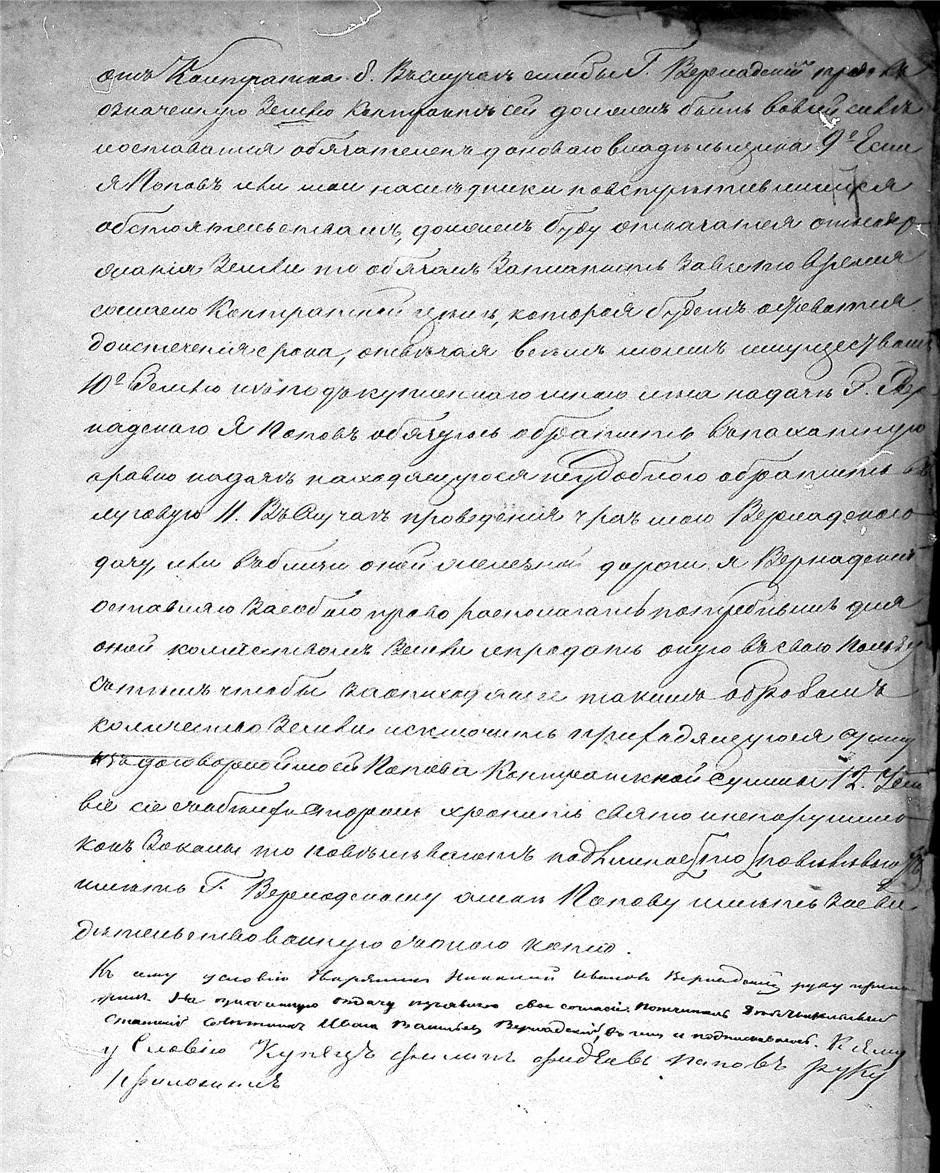 отъ Контракта 8. Въ случаѣ еслибы Г. Вернадскій продалъ
означенную Землю Контрактъ сей долженъ быть во всей силѣ
и оставатся обязателенъ для новаго владѣльца 9е Если
я Поповъ или мои наслѣдники по встрѣтившимся
обстоятельствамъ, долженъ буду отказатся отъ содер-
жанія Земли то обязанъ Заплатить За все то время
согласно Контрактной цѣнѣ, которая будетъ оставатся
до истеченія срока, отвѣчая всѣмъ моимъ имуществомъ
10е Землю изъ подъ купленнаго мною лѣса на дачѣ Г. Вер-
надскаго Я Поповъ обязуюсь обратить въ пахатную
а равно на дачѣ находящуюся неудобную обратить въ
луговую 11. Въ случаѣ проведенія чрезъ мою Вернадскаго
дачу, или въ близи оной желѣзной дороги я Вернадскій
оставляю За собою право располагать потребнымъ для
оной количествомъ Земли и продать оную въ свою пользу
съ тѣмъ чтобы За отходящее такимъ образомъ
количество Земли исключить приходящуюся сумму
изъ договорной моей Попова Контрактной суммы 12. Усло
віе сіе съ обѣихъ сторонъ хранить свято и ненарушимо
какъ Законы то повѣлѣваютъ подлинное
имѣть Г. Вернадскому а мнѣ Попову имѣть Засви
дѣтельствованную съ онаго копію.
Къ сему условію Дворянинъ Николай Ивановъ Вернадскій руку прило
жилъ. На означенную отдачу изъявилъ свое согласіе Дѣйствительный
Статскій Совѣтникъ Иванъ Васильевъ Вернадскій, въ чемъ и подписываюсь. К сему
условію Купецъ Филипъ Поповъ руку
приложилъ